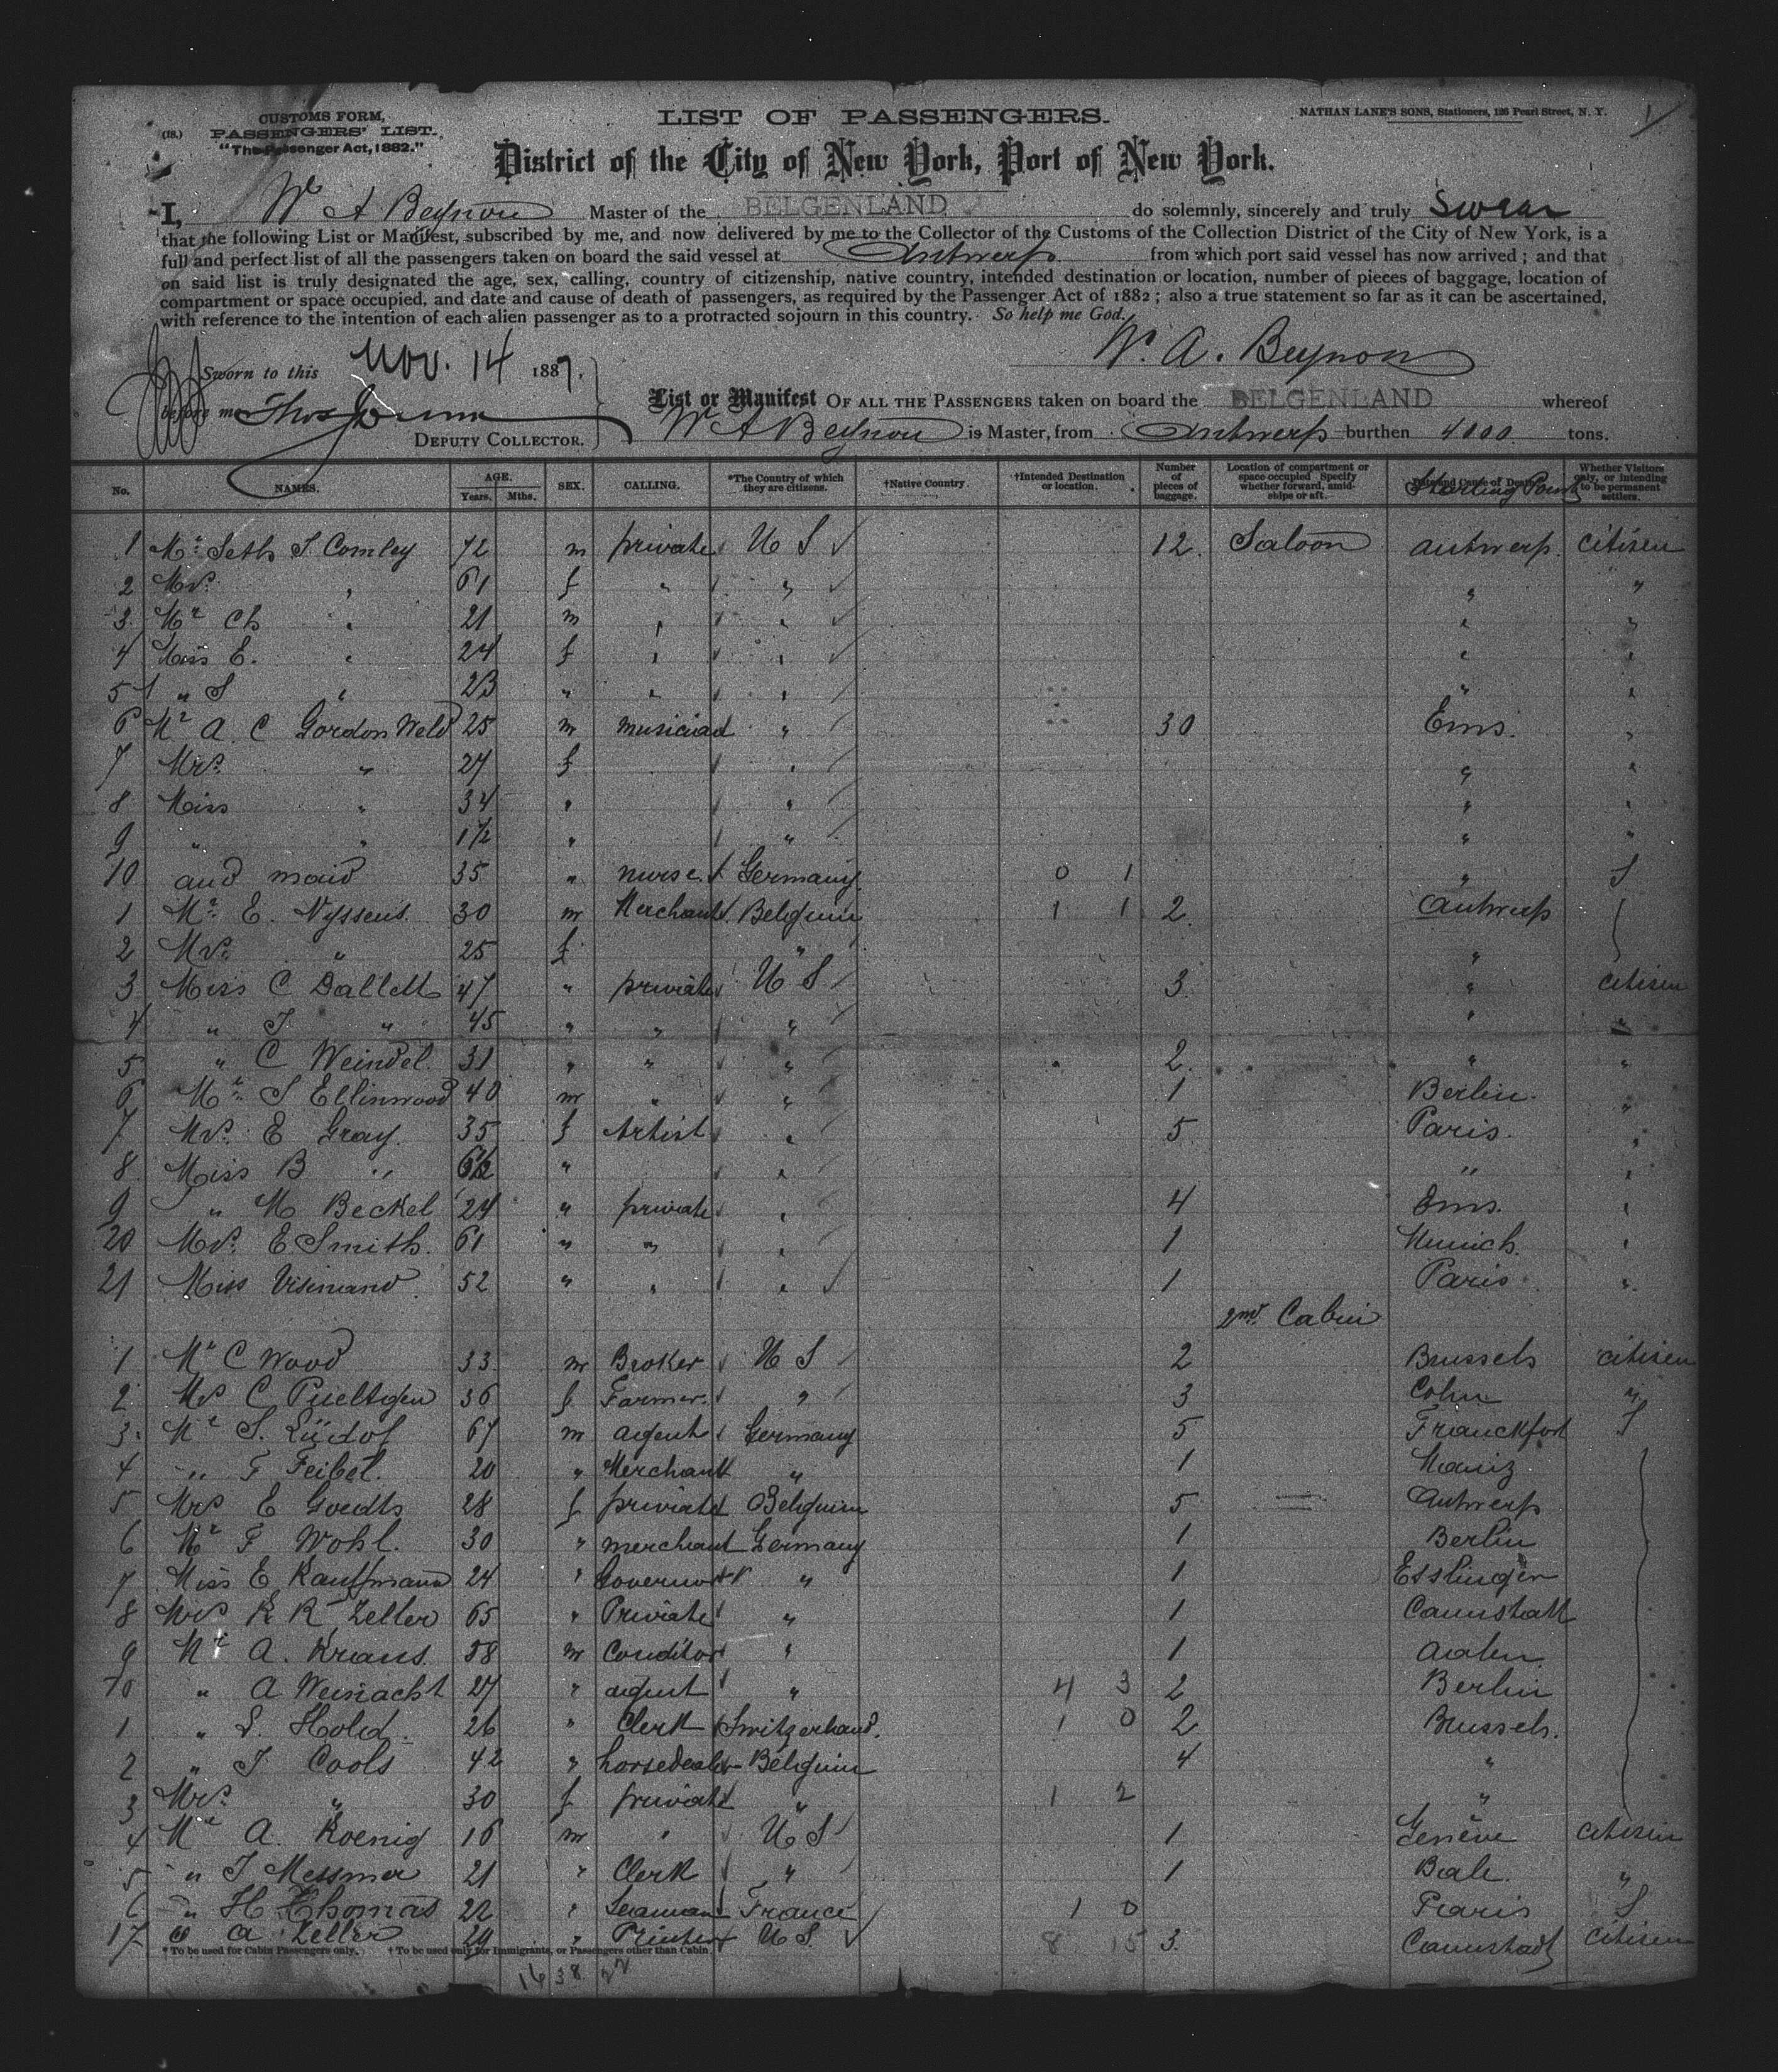 (18.) CUSTOMS FORM, LIST OF PASSENGERS. NATHAN LANE'S SONS, Stationers, 126 Pearl Street, N. Y. 1
PASSENGERS' LIST.
"The Passenger Act, 1882."
District of the City of New York, Port of New York.
I, W A Beynon Master of the BELGENLAND do solemnly, sincerely and truly swear
that the following List or Manifest, subscribed by me, and now delivered by me to the Collector of the Customs of the Collection District of the City of New York, is a
full and perfect list of all the passengers taken on board the said vessel at Antwerp from which port said vessel has now arrived; and that
on said list is truly designated the age, sex, calling, country of citizenship, native country, intended destination or location, number of pieces of baggage, location of
compartment or space occupied, and date and cause of death of passengers, as required by the Passenger Act of 1882; also a true statement so far as it can be ascertained,
with reference to the intention of each alien passenger as to a protracted sojourn in this country. So help me God.
W. A. Beynon
Sworn to this Nov. 14 1887.
before me Thos J Dunn
DEPUTY COLLECTOR.
List or Manifest OF ALL THE PASSENGERS taken on board the BELGENLAND whereof
W A Beynon is Master, from Antwerp burthen 4000 tons.
No. NAMES. AGE. Years. Mths. SEX. CALLING. *The Country of which they are citizens. †Native Country. †Intended Destination or location. Number of pieces of baggage. Location of compartment or space occupied Specify whether forward, amidships or aft. Date and Cause of Death. Starting Point Whether Visitors only, or intending to be permanent settlers.
1 Mr Seth S. Comley 72 m private U S 12. Saloon antwerp. citizen
2 Mrs " 61 f " " " "
3 Mr Ch " 21 m " " " "
4 Miss E. " 24 f " " " "
5 " S " 23 " " " " "
6 Mr A. C Gordon Weld 25 m musician " 30 Ems. "
7 Mrs. " 27 f " " "
8 Miss " 34 " " " "
9 " " 1 1/2 " " " "
10 and maid 35 " nurse Germany 0 1 " S
1 Mr. E. Nyssens 30 m Merchant Belgium 1 1 2 Antwerp
2 Mrs. " 25 f " "
3 Miss C Dallett 47 " private U S 3 " citizen
4 " J " 45 " " " " "
5 " C Weindel. 31 " " " 2. " "
6 Mr. S Ellinwood 40 m " " 1 Berlin. "
7 Mrs. E Gray. 35 f Artist " 5 Paris. "
8 Miss B " " " " "
9 " M Beckel 24 " private " 4 Ems. "
20 Mrs. E Smith. 61 " " " 1 Munich. "
21 Miss 52 " " " 1 Paris "
2nd Cabin
1 Mr C Wood 33 m Broker U S 2 Brussels citizen
2 Mrs C Pueltgen 36 f Farmer. " 3 Coln "
3. Mr S. Lüdol 67 m agent Germany 5 Franckfort S
4 " F Feibel. 20 " Merchant " 1 Mainz
5 Mrs E Goedts 28 f private Belgium 5 Antwerp
6 Mr F Wohl. 30 " merchant Germany 1 Berlin
7 Miss E Kauffmann 24 " " 1 Esslingen
8 Mrs K R Zeller 65 " Private " 1 Cannstatt
9 Mr A. Kraus. 58 m Conditor " 1 Aalen
10 " A Weinacht 27 " agent " 4 3 2 Berlin
1 " L. Hold 26 " Clerk Switzerland. 1 0 2 Brussels.
2 " J Cools 42 " horsedealer Belgium 4 "
3 Mrs. " 30 f private " 1 2 "
4 Mr A. Koenig 16 m " U S 1 Genève citizen
5 " J Messmer 21 " Clerk " 1 Bale. "
6 " H Thomas 22 " Seaman France 1 0 Paris S
17 " A Zeller 29 " Printer U S. 8 15 3. Cannstadt citizen
* To be used for Cabin Passengers only. † To be used only for Immigrants, or Passengers other than Cabin.
16 38